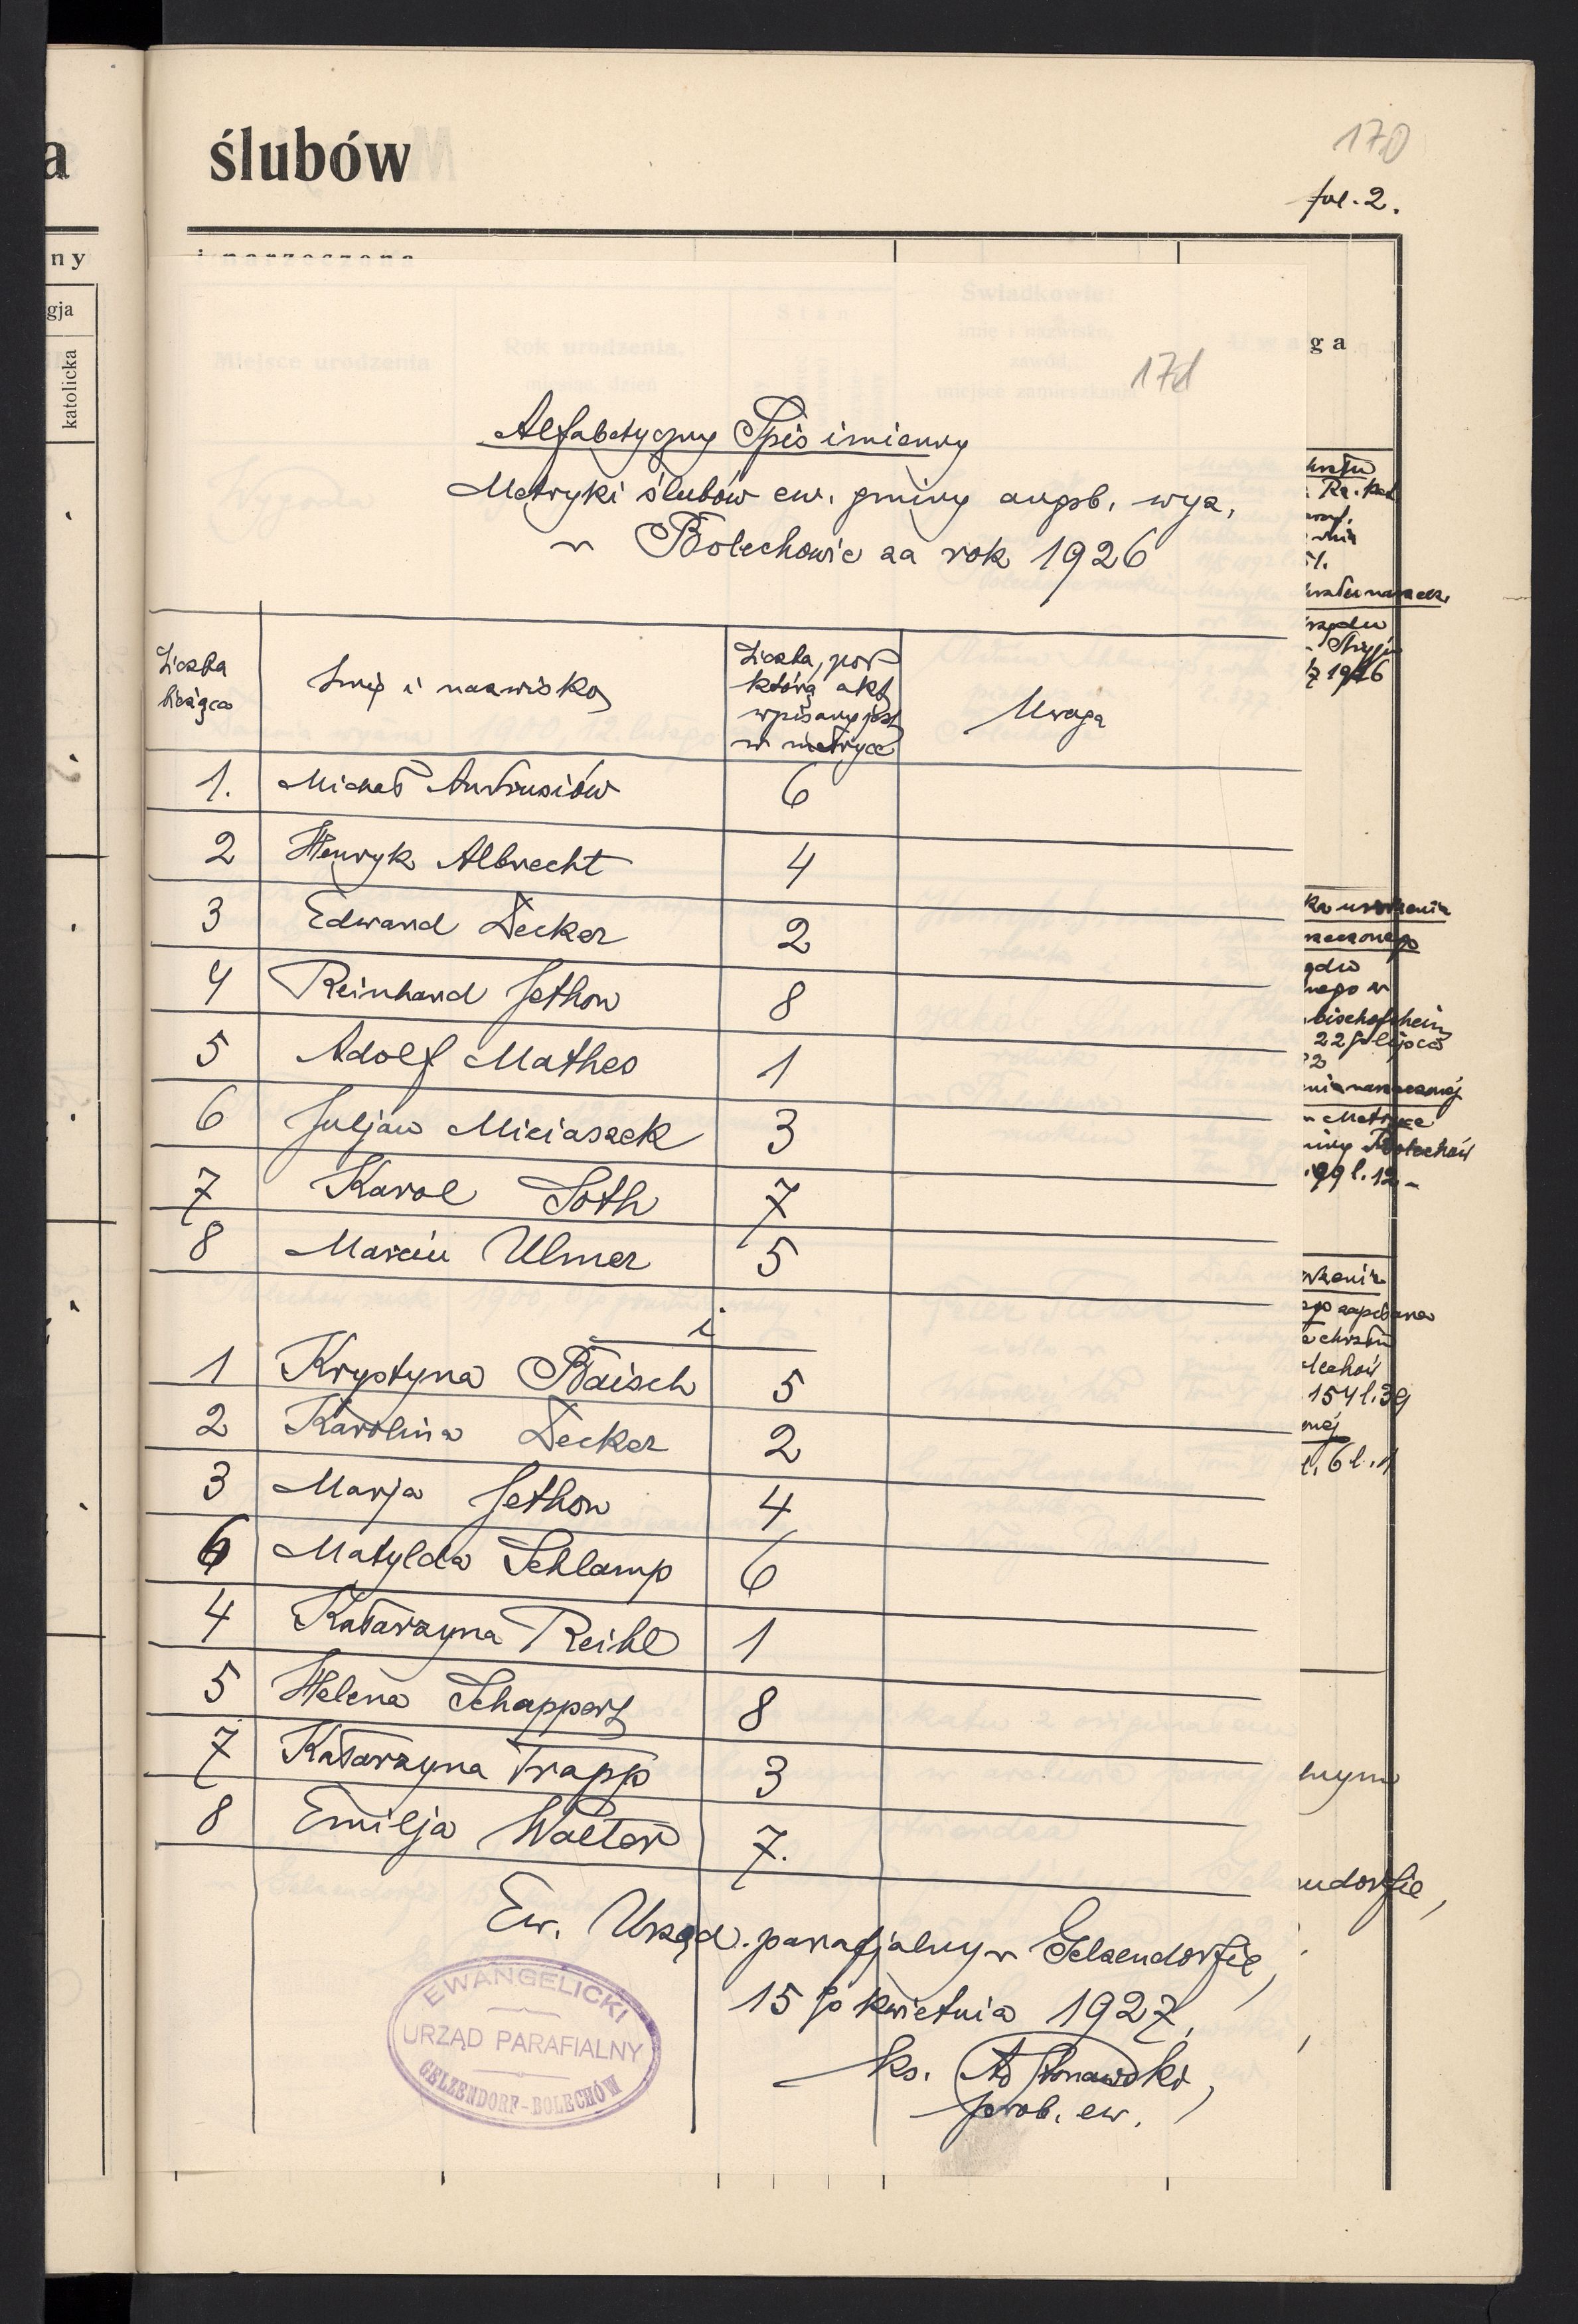 a
ślubów
170
fol. 2.
ny
gja
katolicka
ga
171
Alfabetyczny Spis imienny
Metryki ślubów ew. gminy augsb. wyz.
w Bolechowie za rok 1926
Liczba bieżąca
Imię i nazwisko
Liczba, pod którą akt wpisany jest w metryce
Uwaga
1. Michał Andrusiów 6
2 Henryk Albrecht 4
3 Edward Decker 2
4 Reinhard Jethon 8
5 Adolf Mathes 1
6 Juljan Miciaszek 3
7 Karol Toth 7
8 Marcin Ulmer 5
i
1 Krystyna Baisch 5
2 Karolina Decker 2
3 Marja Jethon 4
6 Matylda Schlamp 6
4 Katarzyna Reihl 1
5 Helena Schappert 8
7 Katarzyna Trapp 3
8 Emilja Walter 7.
Ew. Urząd parafjalny w Gelsendorfie,
15 go kwietnia 1927,
ks.
prob. ew.
EWANGELICKI
URZĄD PARAFIALNY
GELZENDORF-BOLECHÓW